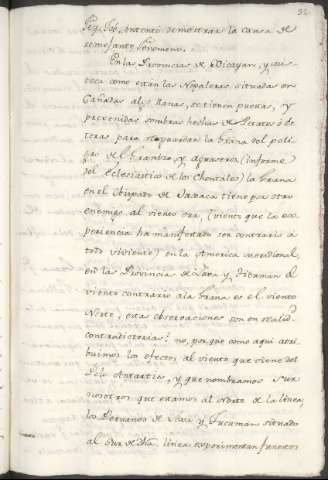 52
intentó demostrar la causa de
semejante fenomeno.
En la Provincia de Xicayan, y
como estan las Nopaleras situadas en
Cañadas algo llanas, se tienen y
prevenidas sombras hechas de Petates ó de
teras para resguardar la Grana del
de el Granizo, y Aguaseros (informe
del Eclesiastico de los Chontales) la Grana
en el Obispado de Oaxaca tiene por otro
enemigo al viento Sur, (viento que la ex-
periencia ha manifestado ser contrario á
todo viviente) en la America meridional,
en la Provincia de y Tucuman el
viento contrario a la Grana es el viento
Norte, estas observaciones son en realid.d
contradictorias? no, por que como aqui atri-
buimos los efectos al viento que viene del
Polo Antartico, y que nombramos Sur
nosotros que estamos al Norte de la linea,
los Peruanos de y Tucumán situados
al Sur de dha. linea experimentan funestos